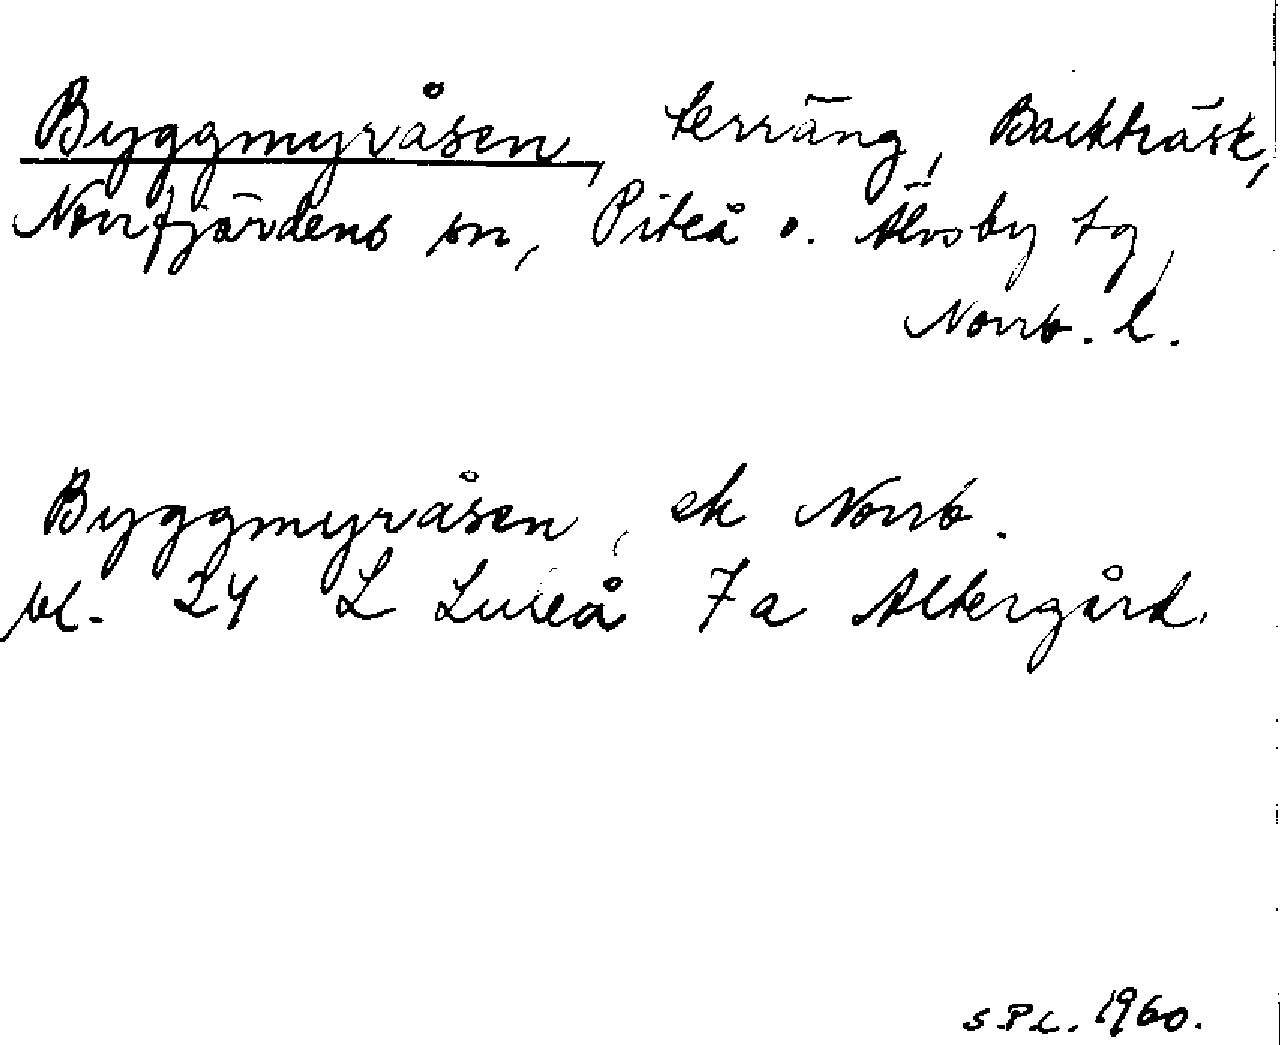 Byggmyråsen, terräng, Backträsk,
Norrfjärdens sn, Piteå o. Älvsby tg,
Norrb. l.
Byggmyråsen, ek Norrb.
bl. 24 L Luleå 7a Altergård.
S.P.L. 1960.